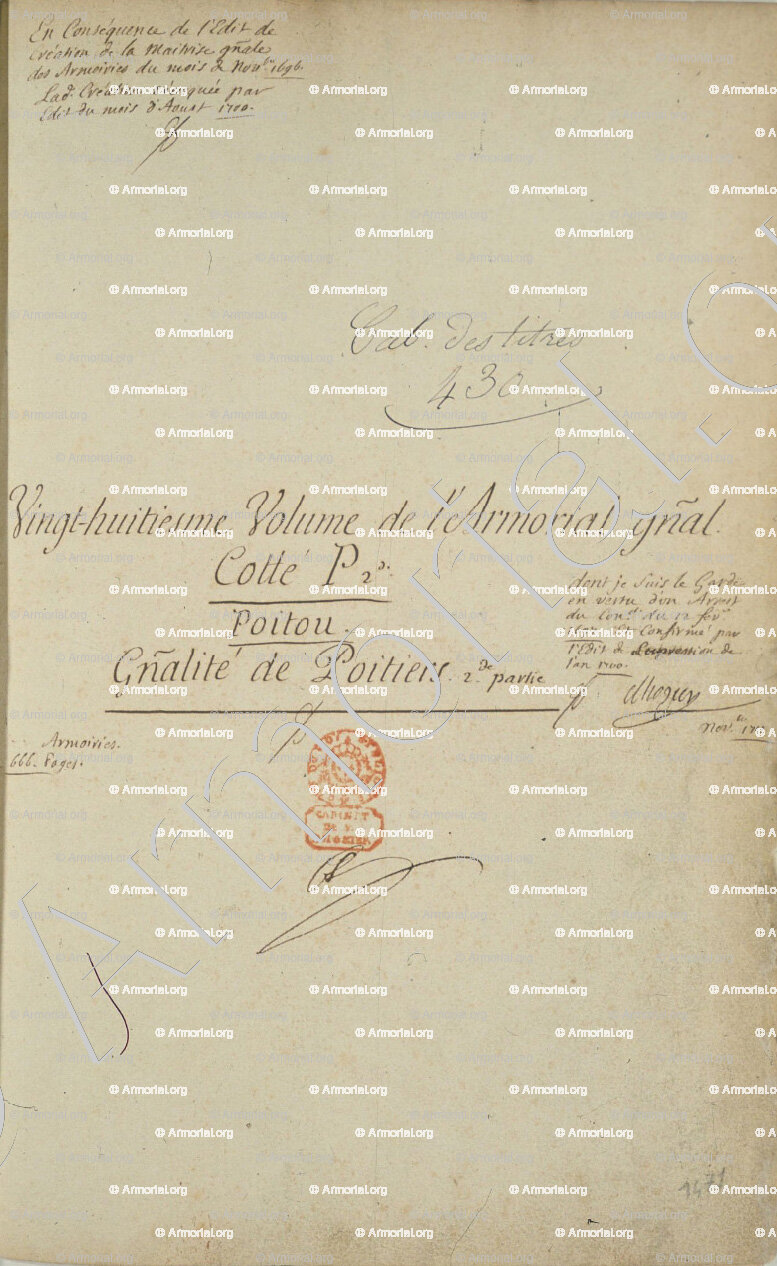 En Conséquence de l'Edit de
Création de la Maitrise gñale
des Armoiries du mois de Nov.bre 1696.
Lad. Création révoquée par
Edit du mois d'Aoust 1700.
Cab. des titres
430
Vingt-huitieme Volume de l'Armorial gñal.
Cotté P 2.d
Poitou.
Gñalité de Poitiers. 2.de partie
dont je suis le Garde
en vertu d'un Arrest
du Con.el du 12 fév.er
et Confirmé par
l'Edit de Supression de
l'an 1700.
dhozier
Nov.bre
Armoiries.
666. Pages.
CABINET
1471
© Armorial.org